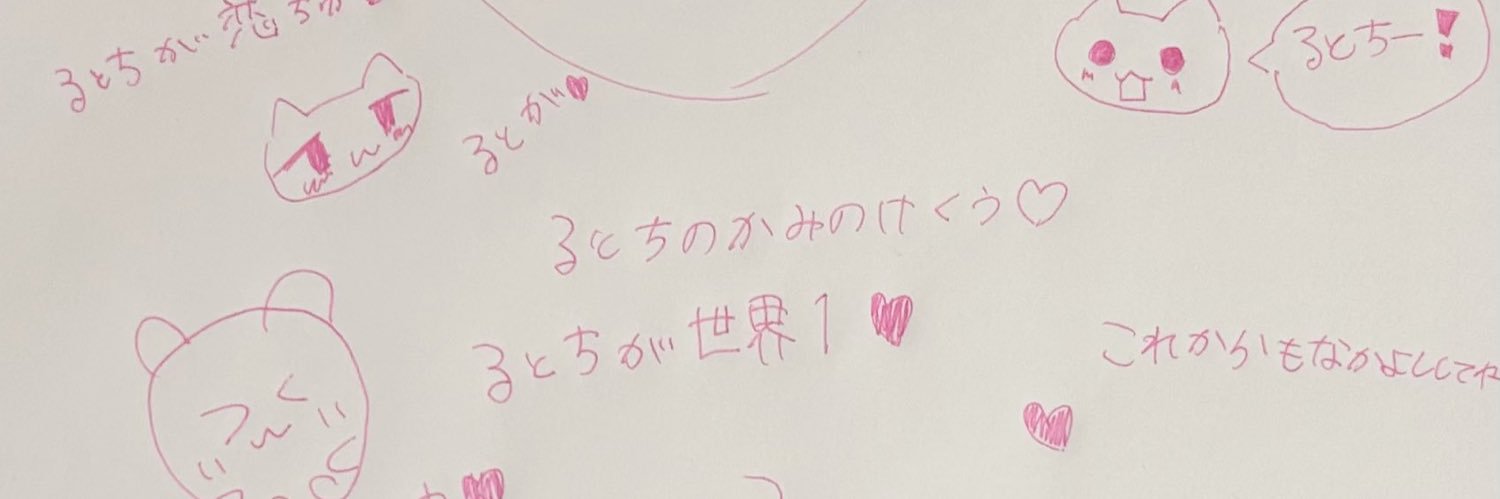 るとちが恋ちが
るとちー!
るとが♥
るとちのかみのけくう♡
るとちが世界1♥
これからもなかよくしてね
♥